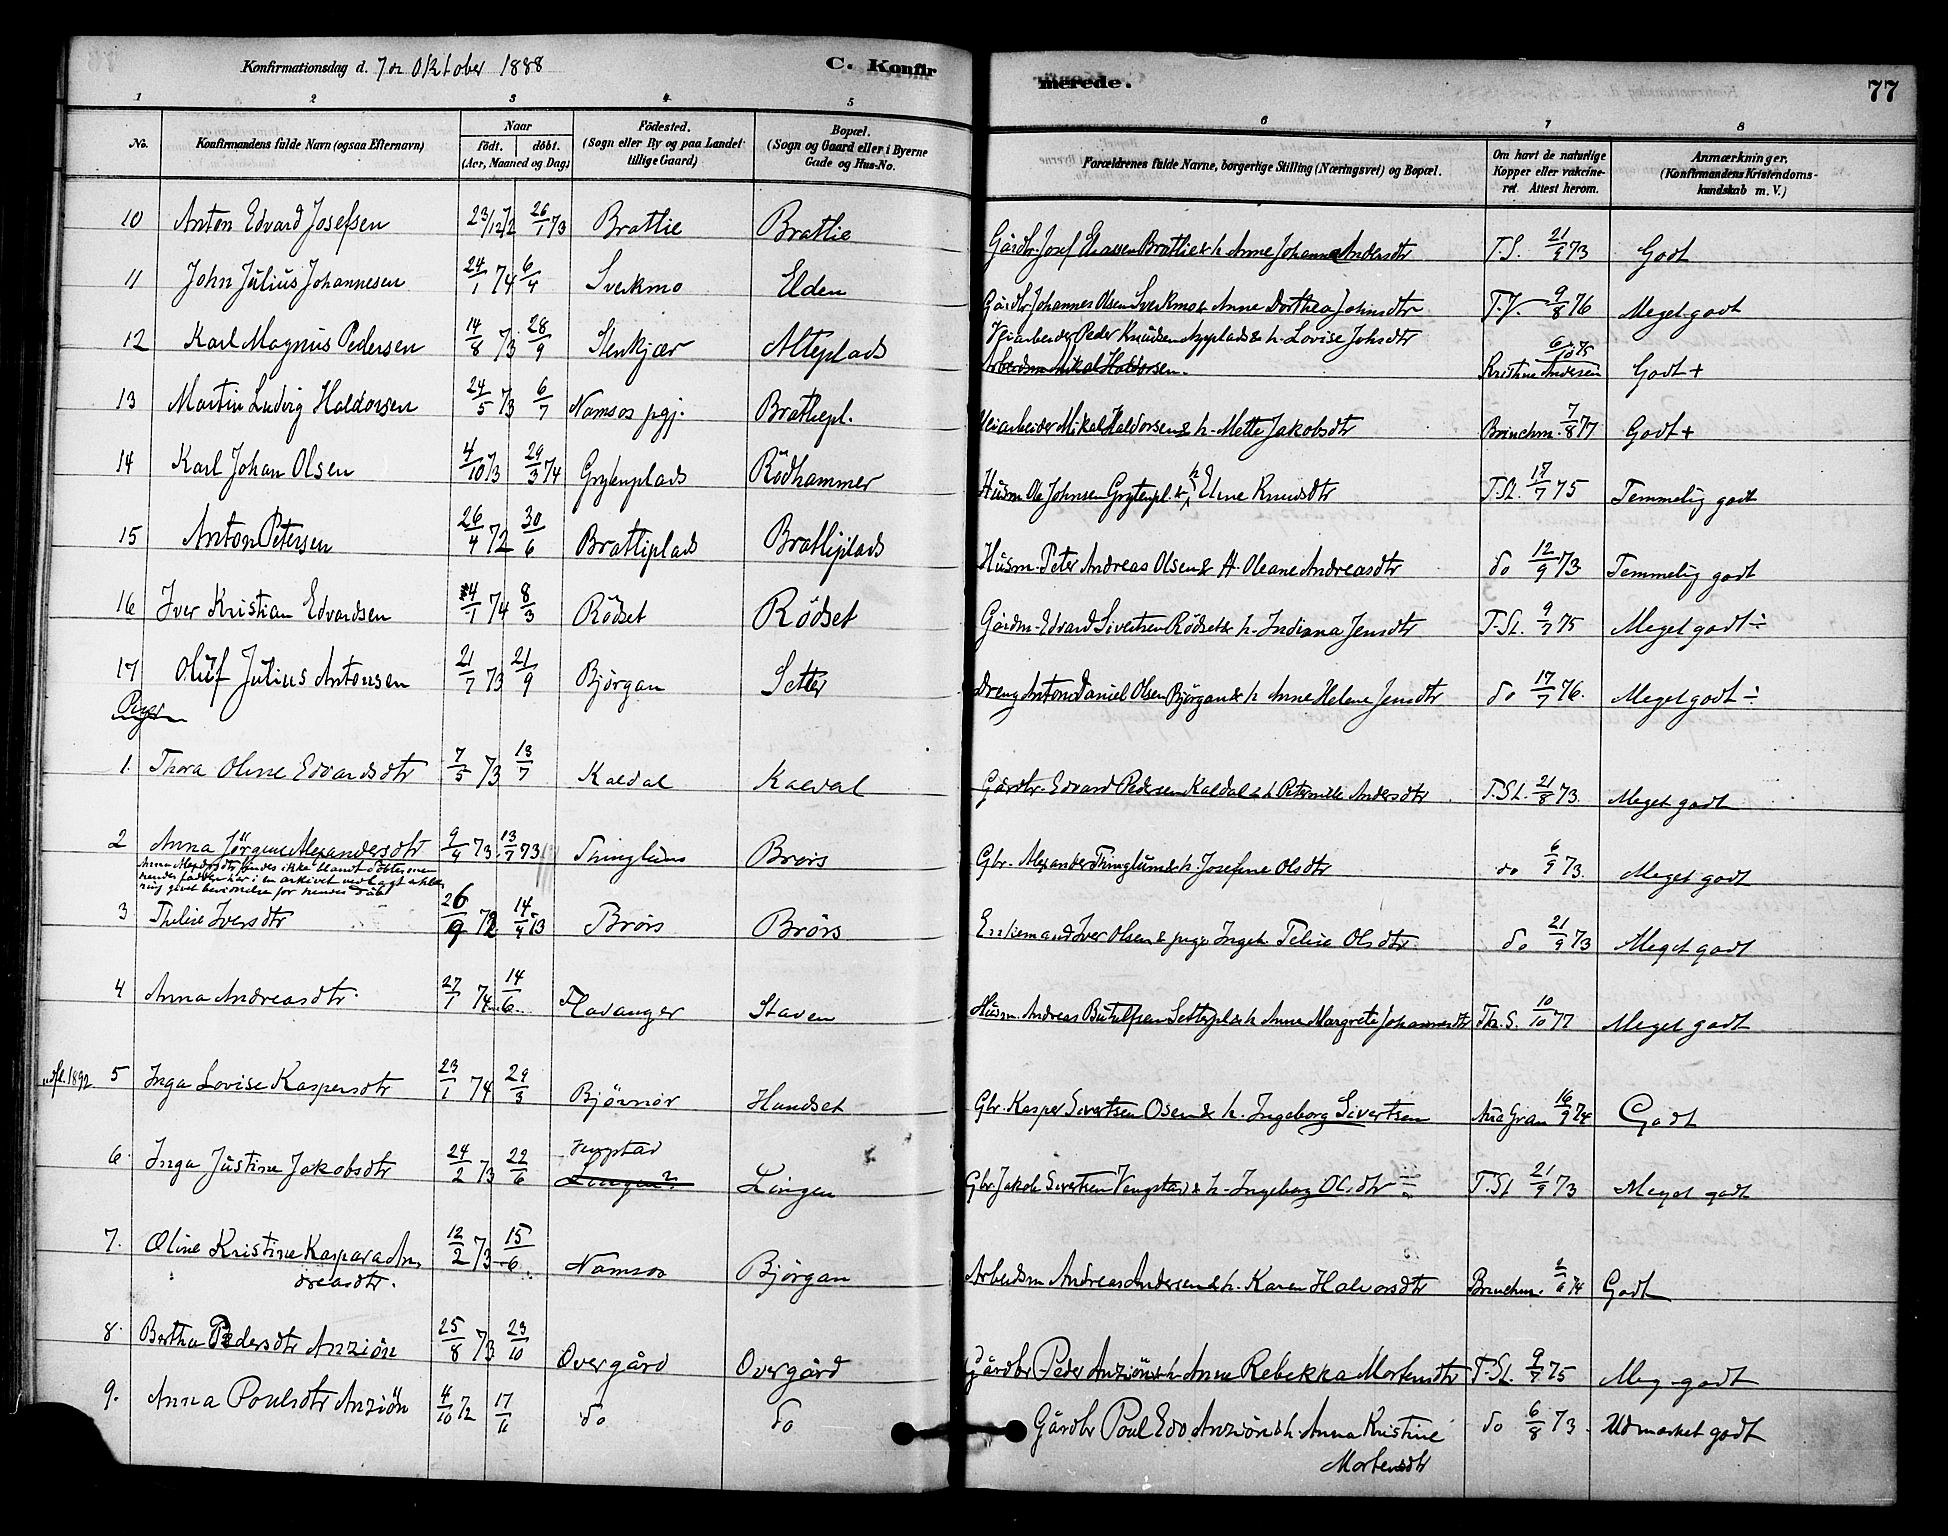 Konfirmationsdag d. 7de Oktober 1888
C. Konfirmerede.
77
1 2 3 4 5 6 7 8
No. Konfirmandens fulde Navn (ogsaa Efternavn) Naar födt. döbt. (Aar, Maaned og Dag) Födested. (Sogn eller By og paa Landet tillige Gaard) Bopæl. (Sogn og Gaard eller i Byerne Gade og Hus-No. Forældrenes fulde Navne, borgerlige Stilling (Næringsvei) og Bopæl. Om havt de naturlige Kopper eller vakcineret. Attest herom. Anmærkninger. (Konfirmandens Kristendomskundskab m. V.)
10 Anton Edvard Josefsen 23/12 72 26/1 73 Brattlie Brattlie Gårdbr. Josef Brattlie & h. Anne Johanna Andersdtr T.S. 21/9 73 Godt
11 John Julius Johannesen 24/1 74 6/4 Sverkmo Elden Gårdbr Johannes Olsen Sverkmo & Anne Dorthea Johnsdtr T.V. 9/8 76 Meget godt
12 Karl Magnus Pedersen 14/8 73 28/9 Stenkjær Alteplads Veiarbeider Peder Knudsen & h. Lovise Johsdtr 6/10 75 Kristine Andersen Godt +
Arbeidsm Mikal Haldorsen.
13 Martin Ludvig Haldorsen 24/5 73 6/7 Namsos pgj. Brattlepl. Veiarbeider Mikal Haldorsen & h. Mette Jakobsdtr Brinchm. 7/8 77 Godt +
14 Karl Johan Olsen 4/10 73 29/3 74 Grytenplads Rödhammer Husm Ole Johnsen Grytenpl. & h Eline Knudsdtr T.St. 17/7 75 Temmelig godt
15 Anton Petersen 26/4 72 30/6 Brattliplads Brattliplads Husm. Peter Andreas Olsen & H. Oleane Andreasdtr do 12/9 73 Temmelig godt
16 Iver Kristian Edvardsen 4/1 74 8/3 Rödset Rödset Gårdm. Edvard Sivertsen Rödset & h. Indiana Jensdtr T.St. 9/7 75 Meget godt ÷
17 Oluf Julius Antonsen 21/7 73 21/9 Bjørgan Setter Dreng Anton Daniel Olsen Bjørgan & h Anne Helene Jensdtr do 17/7 76. Meget godt ÷
Piger
1. Thora Oline Edvardsdtr 7/5 73 13/7 Kaldal Kaldal Gårdbr. Edvard Pedersen Kaldal & h Peternille Andersdtr T.St. 21/8 73. Meget godt
2 Anna Jørgine Alexandersdtr 9/4 73. 13/7 73 Thinglum Brørs Gbr. Alexander Thinglum & h. Josefine Olsdtr do 6/9 73. Meget godt
Anna Alexdrsdtr findes ikke blandt döbte men
hendes fader har i en arkivet vedlagt erklæ
ring givet bevidnelse for hendes Dåb
3 Thelise Iversdtr 26/9 72 14/4 73 Brörs Brörs Enkemand Iver Olsen & pige Ingeb. Telise Olsdtr do 21/9 73 Meget godt
4 Anna Andreasdtr. 27/1 74 14/6 Flavanger Staven Husm. Andreas Setterpl & h Anne Margrete Johannesdtr Th. S. 10/10 77 Meget godt
1892 5 Inga Lovise Kaspersdtr 23/1 74 29/3 Bjövnör Hundset Gbr. Kasper Sivertsen Osen & h. Ingeborg Sivertsen Gran 16/9 74 Godt
6. Inga Justine Jakobsdtr 24/2 73 22/6 Vengstad Lingen? Lingen Gbr. Jakob Sivertsen Vengstad & h. Ingeborg Olsdtr ÷ T.St 21/9 73 Meget godt
7. Oline Kristine Kaspara An
dreasdtr. 12/2 73 15/6 Namsos Bjørgan Arbeidsm Andreas Andersen & h. Karen Halvorsdtr Brinchm. 2/6 74 Godt
8. Bertha Pedersdtr Anziön 25/8 73 23/10 Overgård Overgård Gårdbr Peder Anziön & h Anne Rebekka Mortensdtr T.St. 9/7 75 Meg. godt
9. Anna Poulsdtr Anziön 4/10 72 17/11 do do Gårdbr Poul Edv Anziön & h. Anna Kristine do 6/8 73. Udmærket godt
Mortensdtr